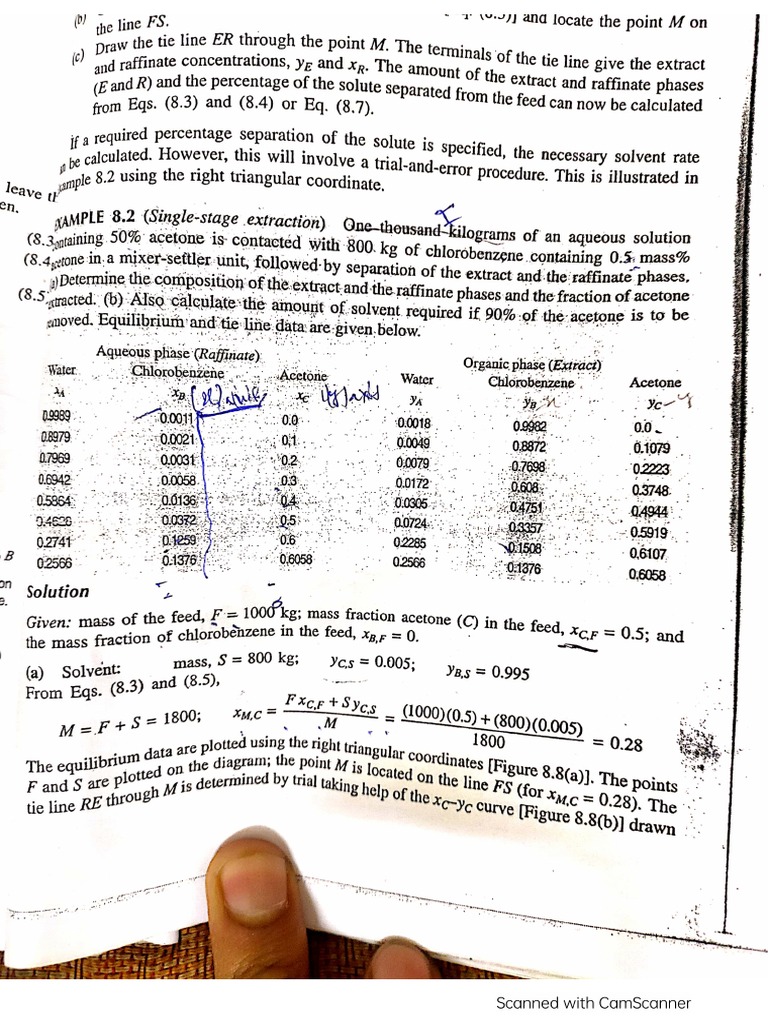 (b) the line FS. (8.5)] and locate the point M on
(c) Draw the tie line ER through the point M. The terminals of the tie line give the extract
and raffinate concentrations, yE and xR. The amount of the extract and raffinate phases
(E and R) and the percentage of the solute separated from the feed can now be calculated
from Eqs. (8.3) and (8.4) or Eq. (8.7).
if a required percentage separation of the solute is specified, the necessary solvent rate
be calculated. However, this will involve a trial-and-error procedure. This is illustrated in
ample 8.2 using the right triangular coordinate.
leave
en.
XAMPLE 8.2 (Single-stage extraction) One thousand kilograms of an aqueous solution
(8.3 ntaining 50% acetone is contacted with 800 kg of chlorobenzene containing 0.5 mass%
(8.4 etone in a mixer-settler unit, followed by separation of the extract and the raffinate phases.
a) Determine the composition of the extract and the raffinate phases and the fraction of acetone
(8.5 tracted. (b) Also calculate the amount of solvent required if 90% of the acetone is to be
moved. Equilibrium and tie line data are given below.
Aqueous phase (Raffinate) Organic phase (Extract)
Water Chlorobenzene Acetone Water Chlorobenzene Acetone
xA xB xC yA yB yC
0.9989 0.0011 0.0 0.0018 0.9982 0.0
0.8979 0.0021 0.1 0.0049 0.8872 0.1079
0.7969 0.0031 0.2 0.0079 0.7698 0.2223
0.6942 0.0058 0.3 0.0172 0.608 0.3748
0.5864 0.0136 0.4 0.0305 0.4751 0.4944
0.4628 0.0372 0.5 0.0724 0.3357 0.5919
0.2741 0.1259 0.6 0.2285 0.1508 0.6107
0.2566 0.1376 0.6058 0.2566 0.1376 0.6058
B
on
e.
Solution
Given: mass of the feed, F = 1000 kg; mass fraction acetone (C) in the feed, xC,F = 0.5; and
the mass fraction of chlorobenzene in the feed, xB,F = 0.
(a) Solvent: mass, S = 800 kg; yC,S = 0.005; yB,S = 0.995
From Eqs. (8.3) and (8.5),
M = F + S = 1800; xM,C = (F xC,F + S yC,S) / M = ((1000)(0.5) + (800)(0.005)) / 1800 = 0.28
The equilibrium data are plotted using the right triangular coordinates [Figure 8.8(a)]. The points
F and S are plotted on the diagram; the point M is located on the line FS (for xM,C = 0.28). The
tie line RE through M is determined by trial taking help of the xC–yC curve [Figure 8.8(b)] drawn
Scanned with CamScanner